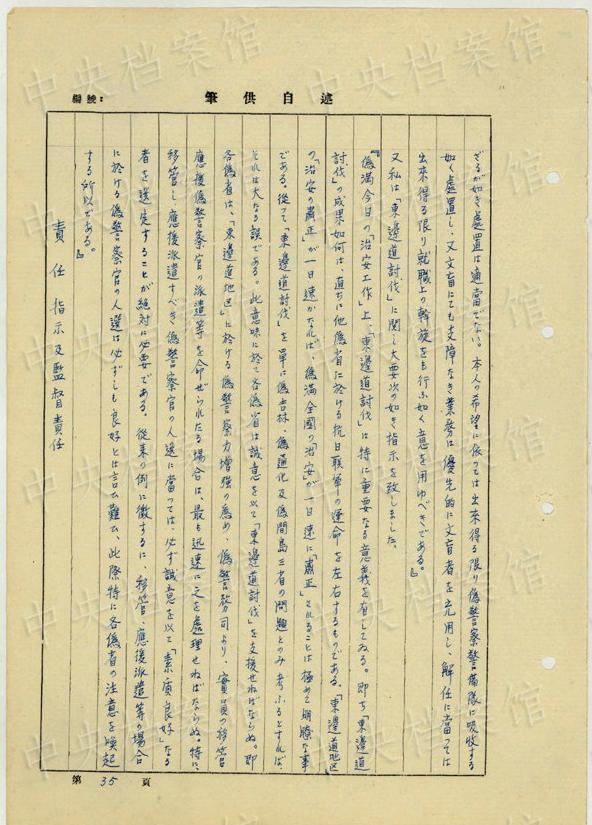 述自供筆
編號:
ざるが如き處置は適當でない。本人の希望に依つては出来得る限り偽警察警備隊に吸收する
如く處置し、又文盲にても支障なき業務は優先的に文盲者を充用し、解任に當つては
出来得る限り就職上の斡旋をも行ふ如く意を用ゆべきである。』
又私は「東邊道討伐」に関し大要次の如き指示を致しました。
『偽満今日の「治安工作」上、「東邊道討伐」は特に重要なる意義を有してゐる。即ち「東邊道
討伐」の成果如何は、直ちに他偽省に於ける抗日联軍の運命を左右するものである。「東邊道地区」
の「治安の肅正」が一日速かなれば、偽満全國の「治安」が一日速に「肅正」されることは極めて明瞭な事
である。従つて「東邊道討伐」を單に偽吉林、偽通化及偽間島三省の問題とのみ考ふるとすれば、
それは大なる誤である。此意味に於て各偽省は誠意を以て「東邊道討伐」を支援せねばならぬ。即
各偽省は、「東邊道地区」に於ける偽警察力增強の為め、偽警務司より、實員の移管
應援偽警察官の派遣等を命ぜられたる場合は、最も迅速に之を處理せねばならぬ。特に、
移管し應援派遣すべき偽警察官の人選に當つては、必ず誠意を以て「素質良好」なる
者を選定することが絶対に必要である。従来の例に徴するに、移管、應援派遣等の場合
に於ける偽警察官の人選は必ずしも良好とは言ふ難い、此際特に各偽省の注意を喚起
する所以である。』
責任指示及監督責任
第35頁
中央档案馆